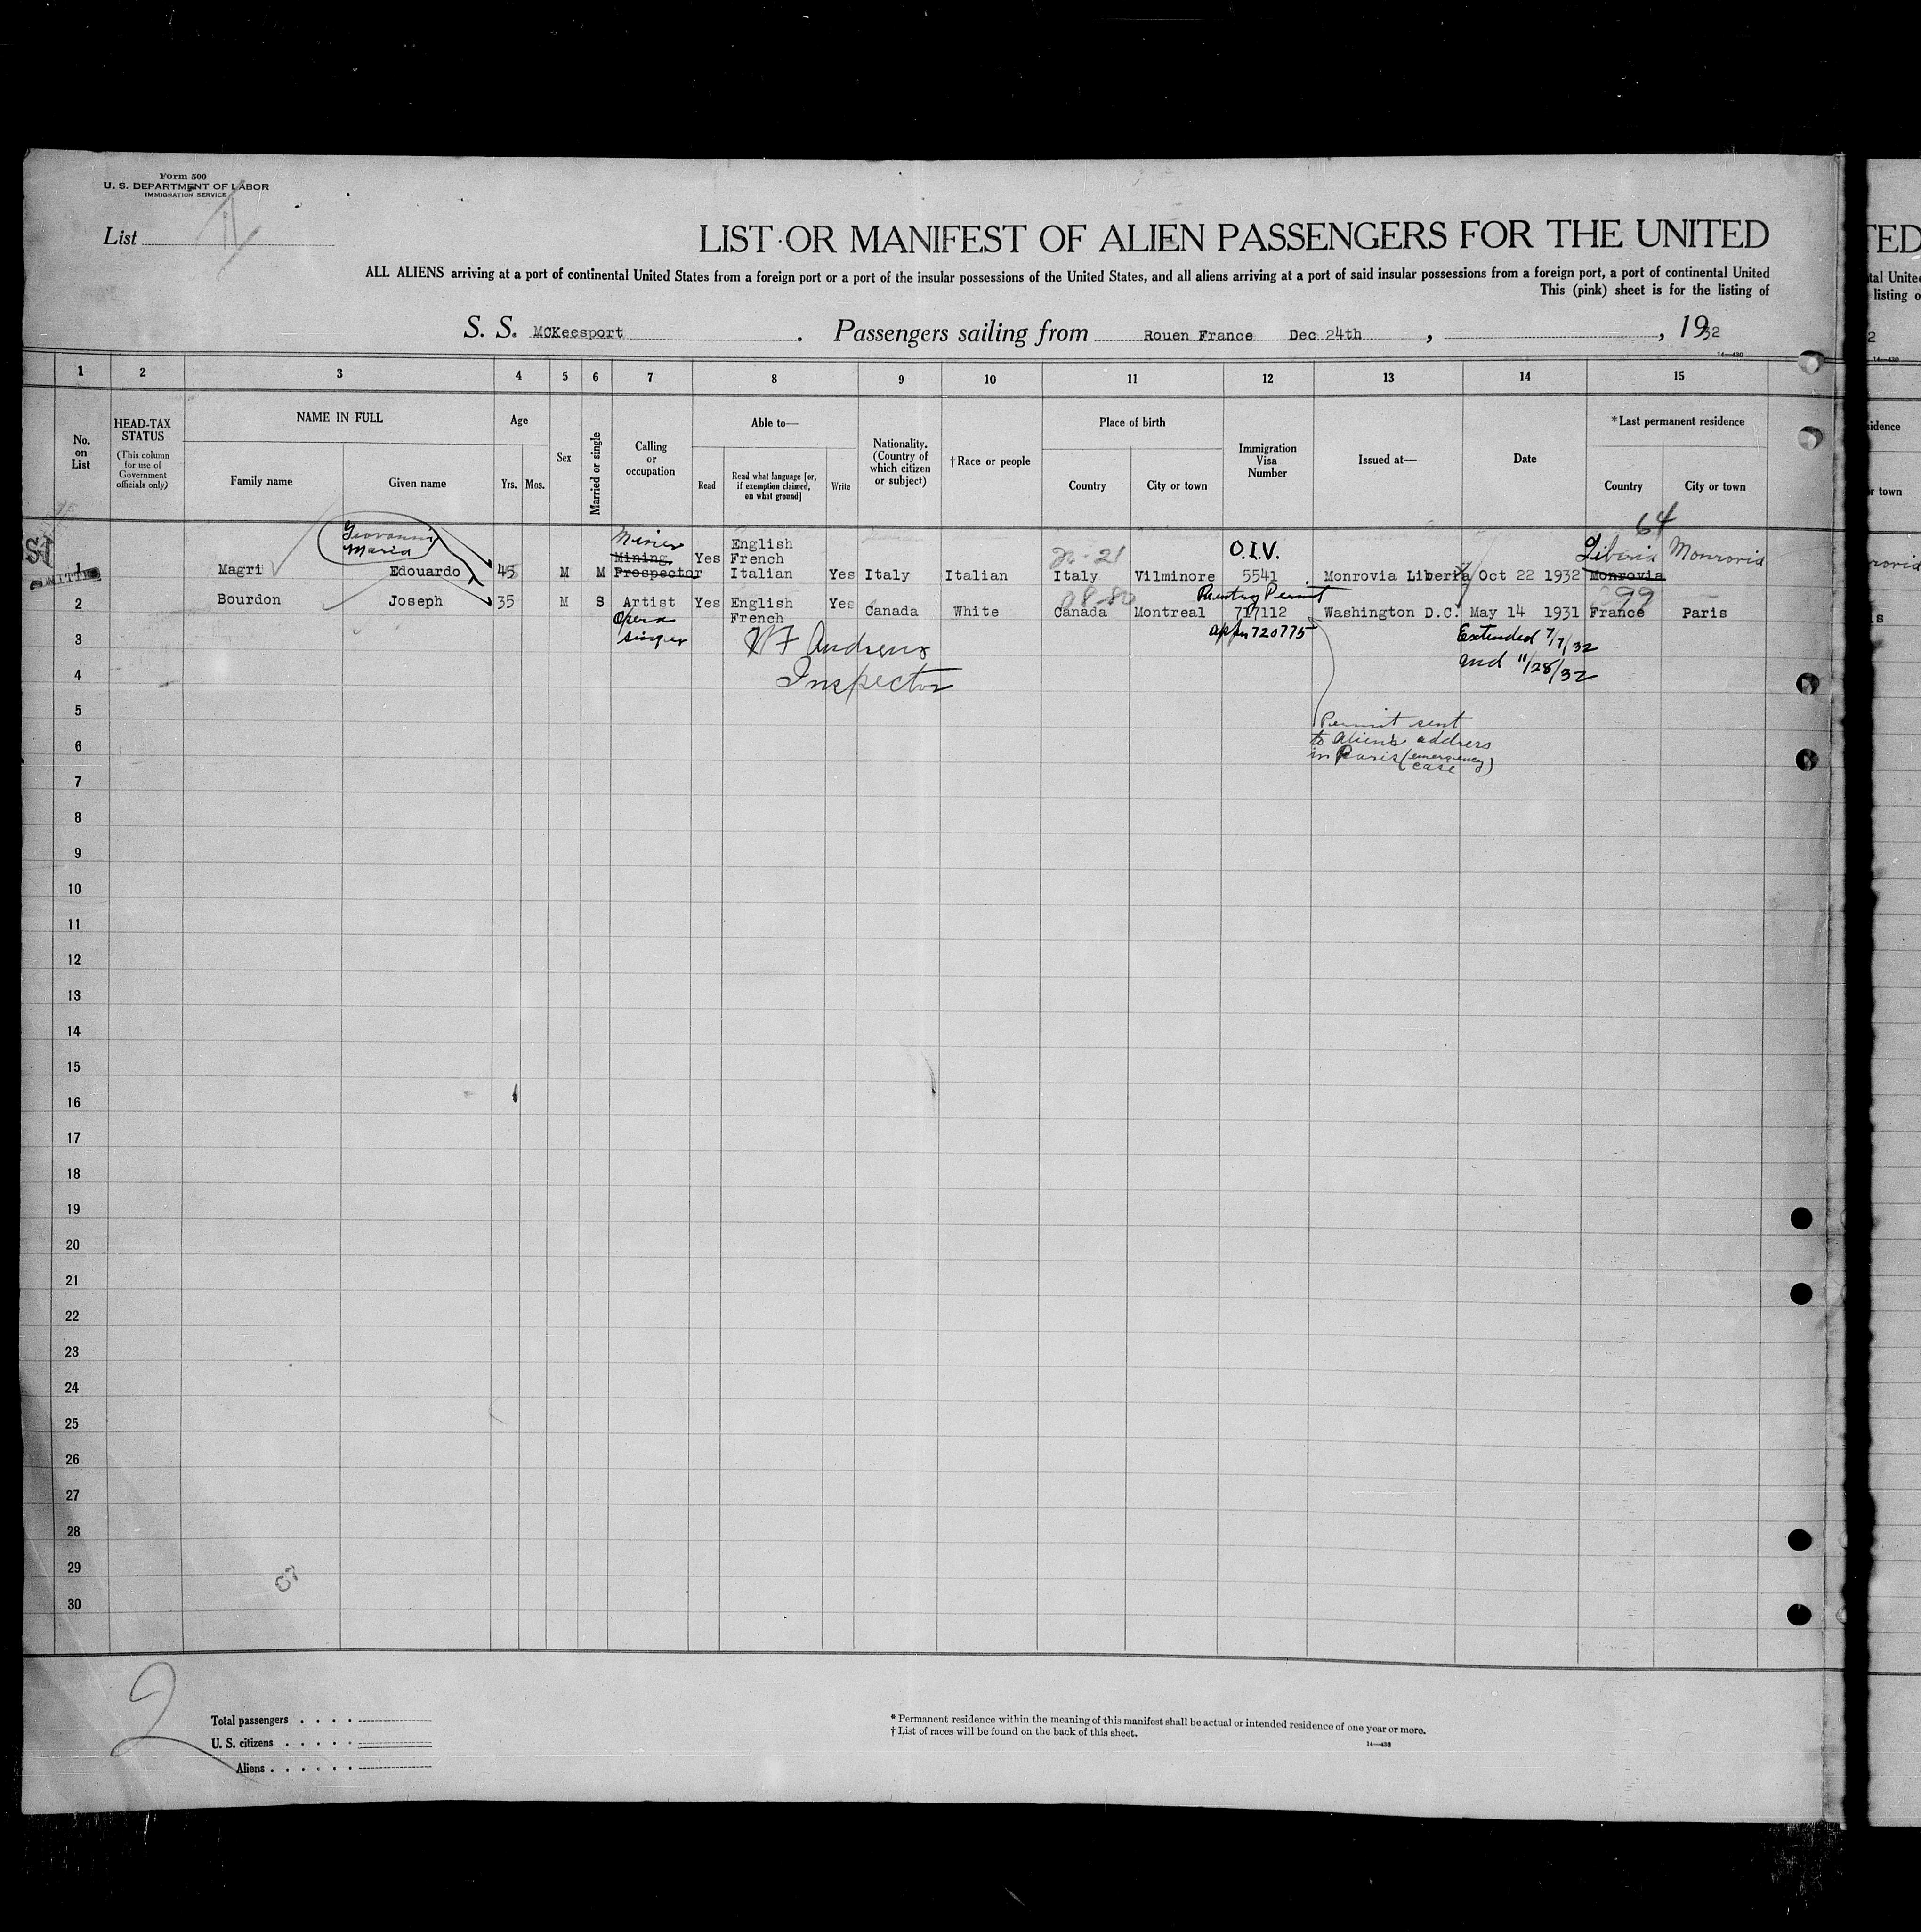 Form 500
U. S. DEPARTMENT OF LABOR
IMMIGRATION SERVICE
List
LIST OR MANIFEST OF ALIEN PASSENGERS FOR THE UNITED
ALL ALIENS arriving at a port of continental United States from a foreign port or a port of the insular possessions of the United States, and all aliens arriving at a port of said insular possessions from a foreign port, a port of continental United
This (pink) sheet is for the listing of
S. S. MCKeesport. Passengers sailing from Rouen France Dec 24th, , 1932
14—430
1 2 3 4 5 6 7 8 9 10 11 12 13 14 15
No. on List
HEAD-TAX STATUS
(This column for use of Government officials only)
NAME IN FULL
Family name Given name
Age
Yrs. Mos.
Sex
Married or single
Calling or occupation
Able to—
Read
Read what language [or, if exemption claimed, on what ground]
Write
Nationality. (Country of which citizen or subject)
†Race or people
Place of birth
Country City or town
Immigration Visa Number
Issued at—
Date
*Last permanent residence
Country City or town
64
Giovanni Miner English Q.I.V. Liberia Monrovia
Maria Mining Yes French 20-21
1 Magri Edouardo 45 M M Prospector Italian Yes Italy Italian Italy Vilminore 5541 Monrovia Liberia Oct 22 1932 Monrovia
Reentry Permit 99
2 Bourdon Joseph 35 M S Artist Yes English Yes Canada White Canada Montreal 717112 Washington D.C. May 14 1931 France Paris
Opera French
singer 720775 Extended 7/7/32
and 11/28/32
3
W F Andrews
4
Inspector
5
Permit sent
6
to Alien's address
in Paris (emergency
case)
7
8
9
10
11
12
13
14
15
16
17
18
19
20
21
22
23
24
25
26
27
28
29
30
2
Total passengers
U. S. citizens
Aliens
* Permanent residence within the meaning of this manifest shall be actual or intended residence of one year or more.
† List of races will be found on the back of this sheet.
14—430